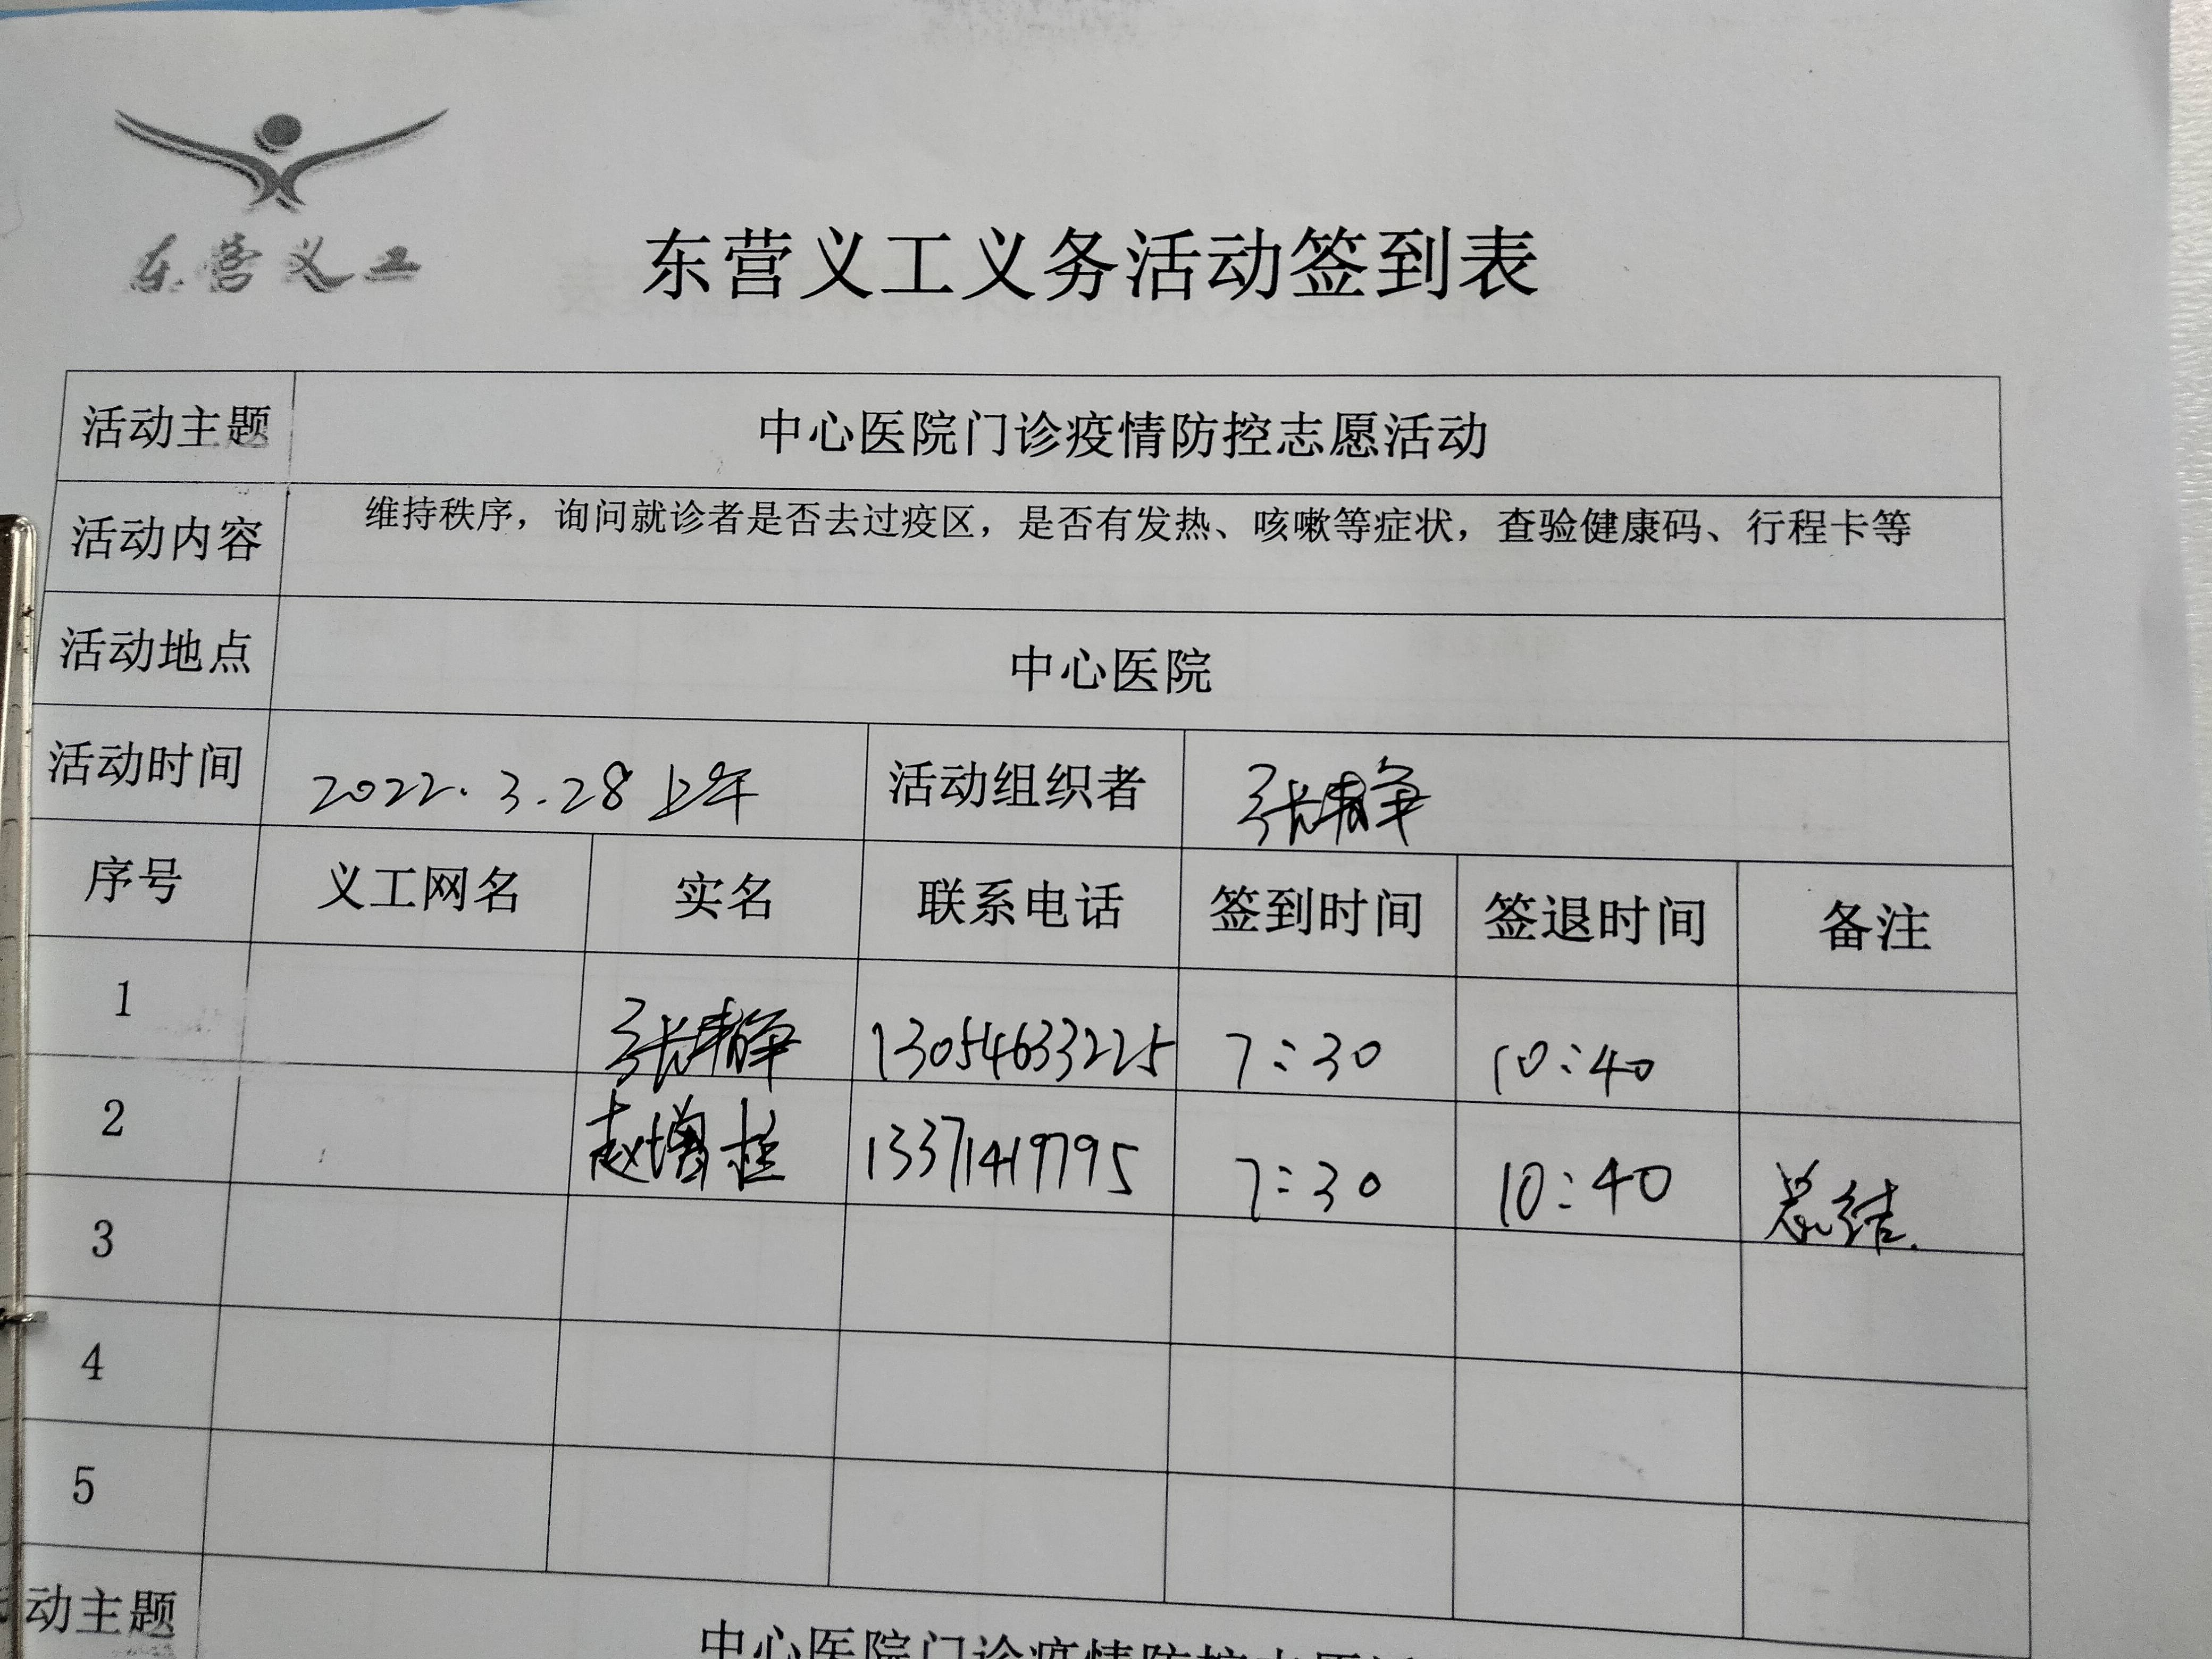 东营义工
东营义工义务活动签到表
活动主题 中心医院门诊疫情防控志愿活动
活动内容 维持秩序，询问就诊者是否去过疫区，是否有发热、咳嗽等症状，查验健康码、行程卡等
活动地点 中心医院
活动时间 2022.3.28上午 活动组织者 张静
序号 义工网名 实名 联系电话 签到时间 签退时间 备注
1 张静 13054633225 7:30 10:40
2 赵增 13371419795 7:30 10:40 总结.
3
4
5
动主题 中心医院门诊疫情防控志愿活